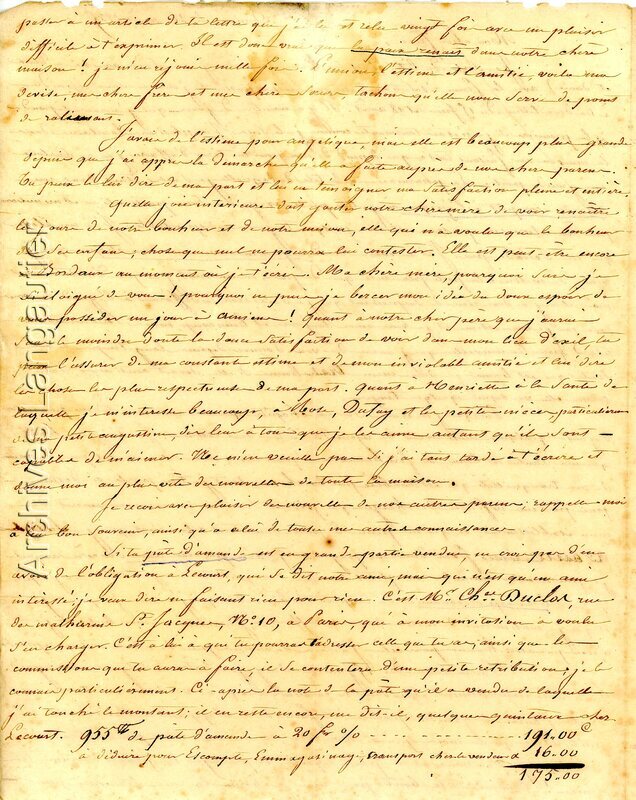 passer à un article de ta lettre que j'ai lu et relu vingt fois avec un plaisir
difficile à t'exprimer. Il est donc vrai que la paix renait dans notre chère
maison ! je m'en réjouis mille fois. L'union, l'estime et l'amitié, voila ma
devise, mon cher frère et ma chère Soeur, tachons qu'elle nous Serve de point
de raliement.
J'avais de l'estime pour angelique, mais elle est beaucoup plus grande
depuis que j'ai appris la démarche qu'elle a faite auprès de nos chers parens.
Tu peux le lui dire de ma part et lui en témoigner ma Satisfaction pleine et entière.
Quelle joie intérieure doit gouter notre chère mère de voir renaitre
les jours de notre bonheur et de notre union, elle qui n'a voulu que le bonheur
de Ses enfans, chose que nul ne pourra lui contester. Elle est peut-être encore
à Bordeaux au moment où je t'écris. Ma chère mère, pourquoi Suis-je
éloigné de vous ! pourquoi ne puis-je bercer mon idée du doux espoir de
vous posséder un jour à ! Quant à notre cher père que j'aurai
Sans le moindre doute la douce Satisfaction de voir dans mon lieu d'exil, tu
peux l'assurer de ma constante estime et de mon inviolable amitié et lui dire
les choses les plus respectueuses de ma part. Quant à Henriette à la Santé de
laquelle je m'interesse beaucoup, à Rose, Dufay et les petites nièces particulièrement
la petite augustine, dis leur à tous que je les aime autant qu'ils Sont
capables de m'aimer. Ne m'en veuille pas Si j'ai tant tardé à t'écrire et
donne moi au plus vite des nouvelles de toute la maison.
Je recevrai avec plaisir des nouvelles de nos autres parens; rappelle-moi
à leur bon Souvenir, ainsi qu'à celui de toutes mes autres connaissances.
Si ta pâte d'amande est en grande partie vendue, ne crois pas d'en
avoir de l'obligation à Lecourt, qui Se dit notre ami, mais qui n'est qu'un ami
interessé, je veux dire ne faisant rien pour rien. C'est Mr. Chs. Duclos, rue
des mathurins St. Jacques, No. 10, à Paris, qui à mon invitation a voulu
S'en charger. C'est à lui à qui tu pourras adresser celle que tu as, ainsi que les
commissions que tu auras à faire, il se contentera d'une petite retribution; je le
connais particulièrement. Ci-après la note de la pâte qu'il a vendu de laquelle
j'ai touché le montant; il en reste encore, me dit-il, quelques quintaux chez
Lecourt. 955 lb de pâte d'amande à 20 frs % 191.00 c
à déduire pour Escompte, Emmagasinage, transport chez le vendeur 16.00
175.00
Archives Langautier